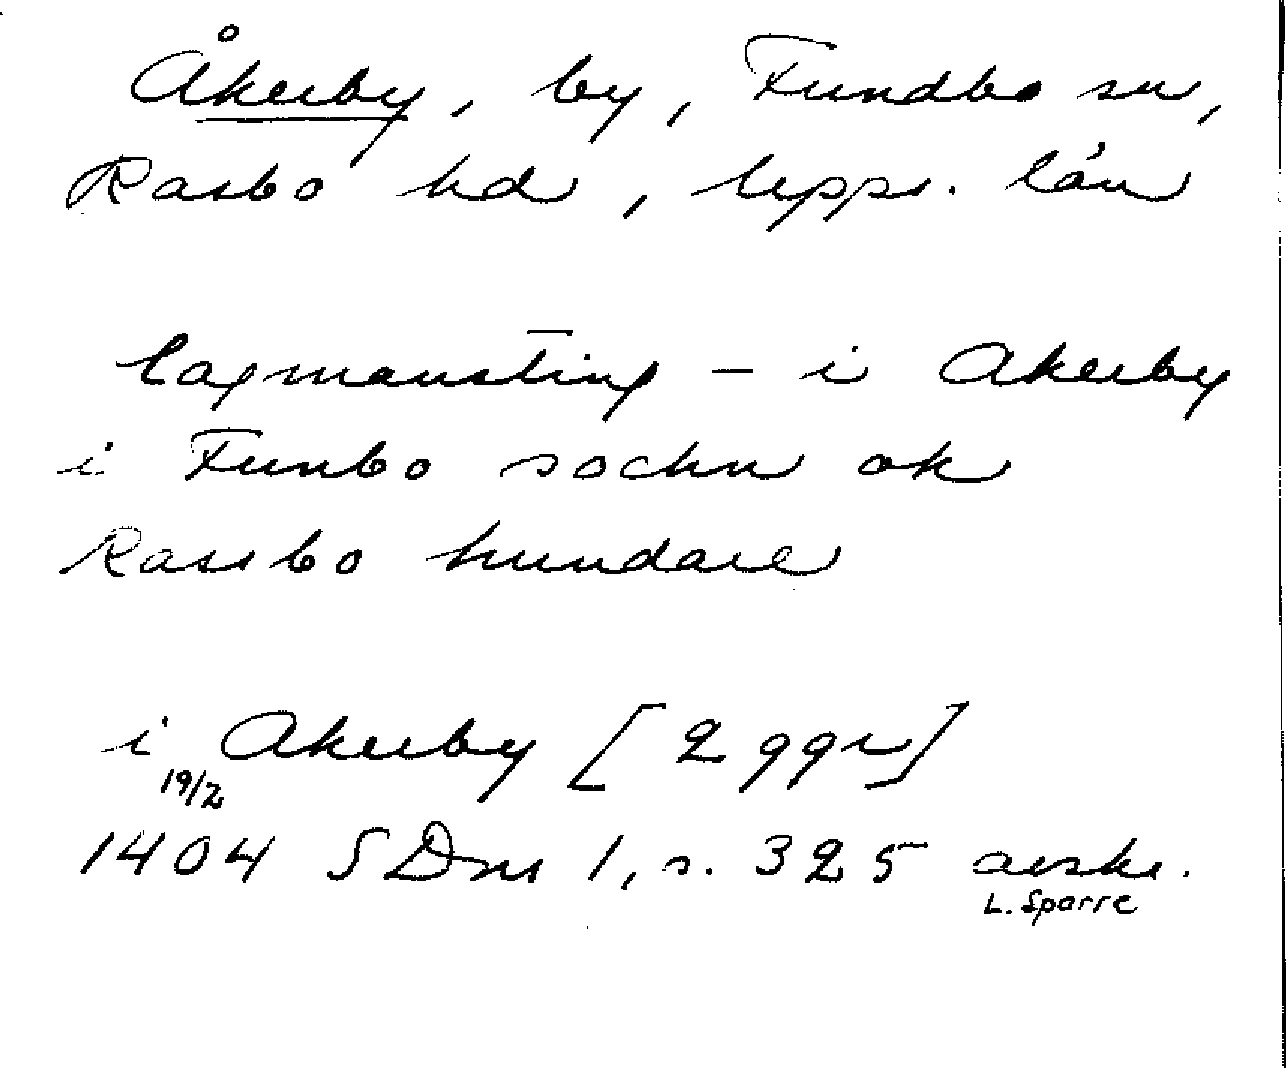 Åkerby, by, Fundbo sn,
Rasbo hd, Upps. län
Lagmansting – i Akerby
i Funbo sochn ok
Rassbo hundare
i Akerby [2 ggr]
19/2
1404 SDns 1, s. 325 avskr.
L. Sparre